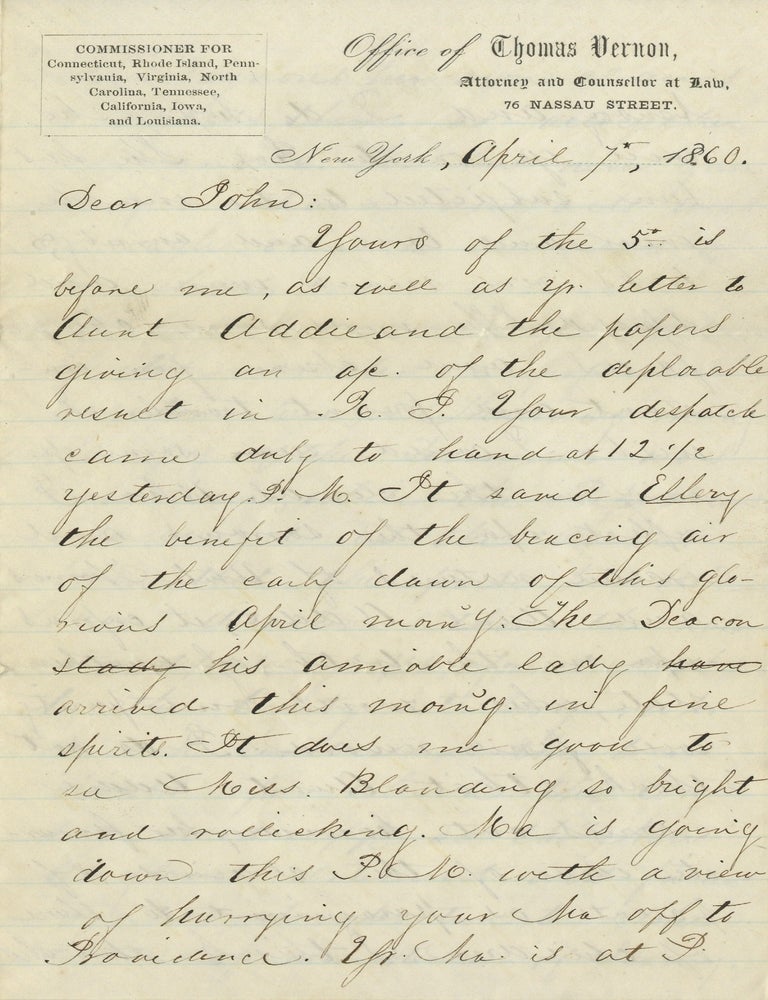 COMMISSIONER FOR
Connecticut, Rhode Island, Penn-
sylvania, Virginia, North
Carolina, Tennessee,
California, Iowa,
and Louisiana.
Office of Thomas Vernon,
Attorney and Counsellor at Law,
76 NASSAU STREET.
New York, April 7th, 1860.
Dear John:
Yours of the 5th is
before me, as well as yr. letter to
Aunt Addie and the papers
giving an a/c. of the deplorable
result in R. I. Your despatch
came duly to hand at 12 1/2
yesterday P. M. It saved Ellery
the benefit of the bracing air
of the early dawn of this glo-
rious April morng. The Deacon
his amiable lady have
arrived this morng. in fine
spirits. It does me good to
see Miss. Blanding so bright
and rollicking. Ma is going
down this P. M. with a view
of hurrying your Ma off to
Providence. Yr. Ma. is at P.